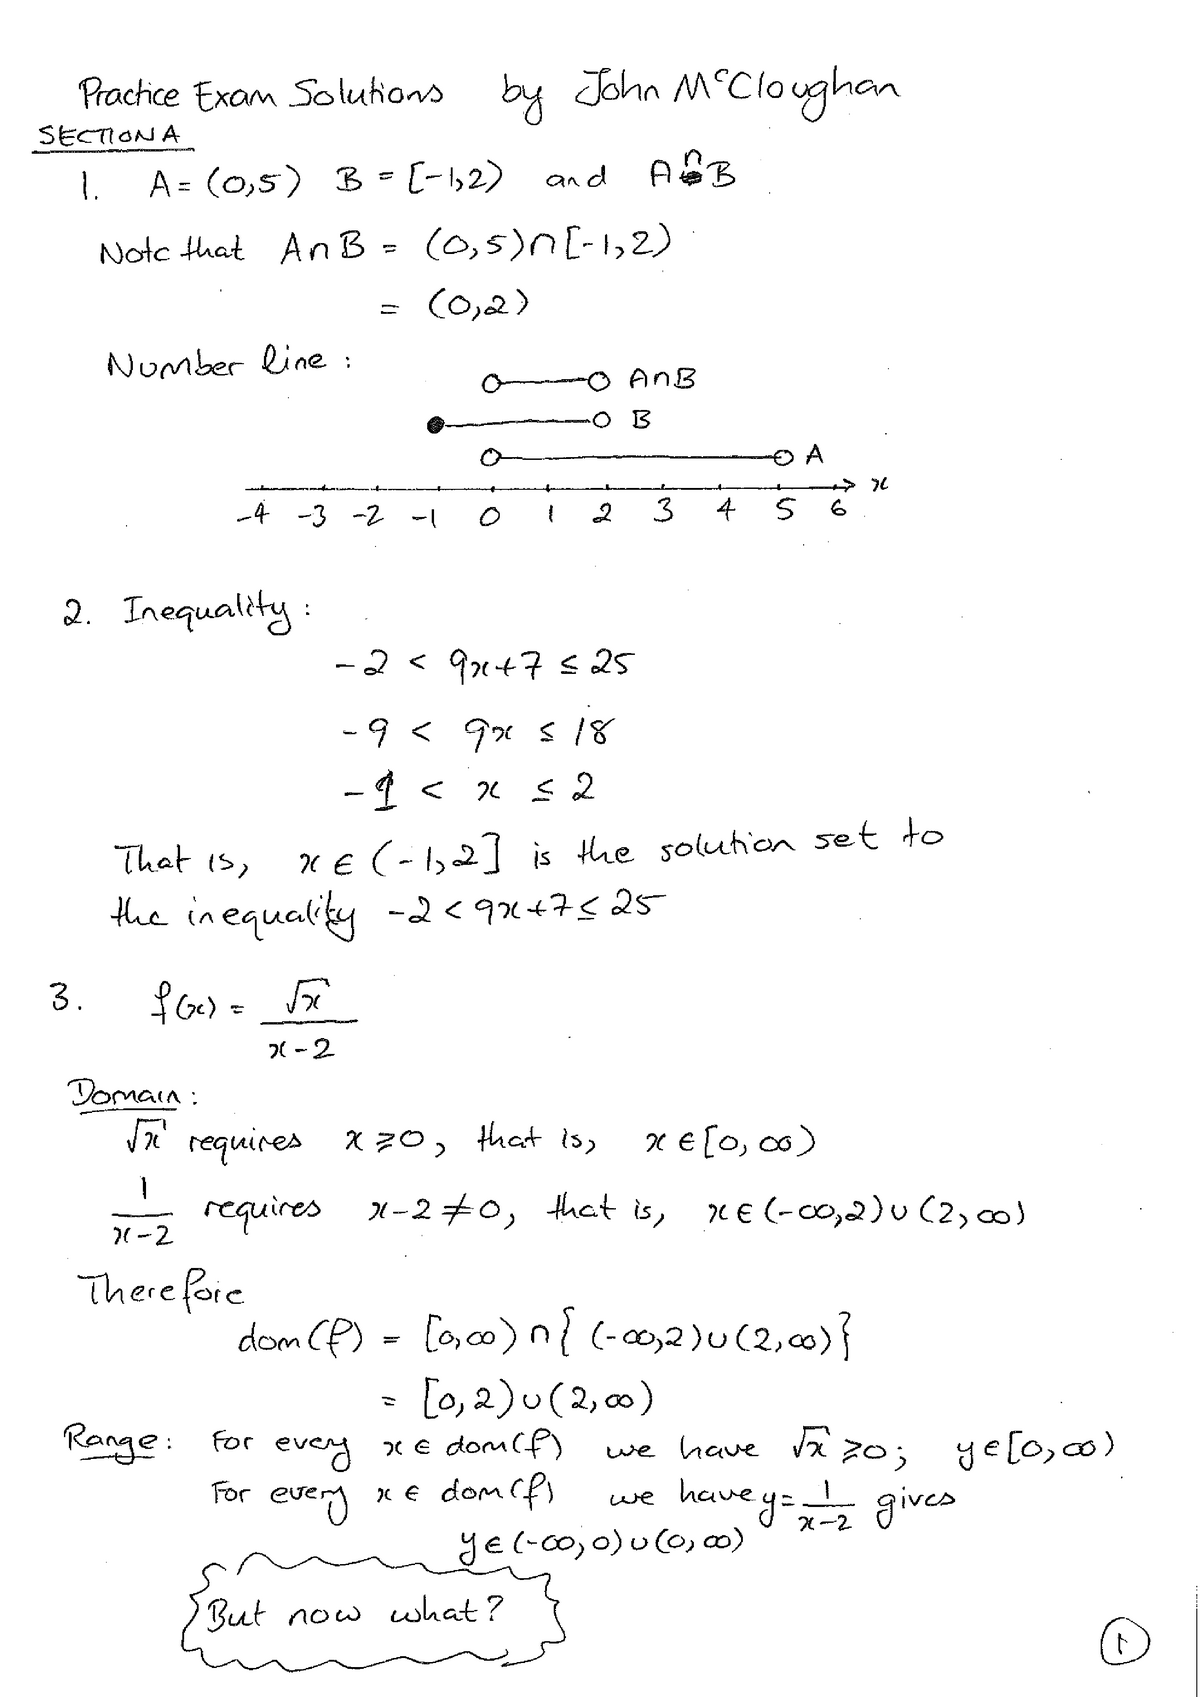 Practice Exam Solutions by John McCloughan
SECTION A
1. A = (0,5) B = [-1,2) and A∩B
Note that A∩B = (0,5)∩[-1,2)
= (0,2)
Number line :
A∩B
B
A
x
-4 -3 -2 -1 0 1 2 3 4 5 6
2. Inequality :
-2 < 9x+7 ≤ 25
-9 < 9x ≤ 18
-1 < x ≤ 2
That is, x ∈ (-1,2] is the solution set to
the inequality -2 < 9x+7 ≤ 25
3. f(x) = √x
x-2
Domain :
√x requires x ≥ 0, that is, x ∈ [0,∞)
1
x-2 requires x-2 ≠ 0, that is, x ∈ (-∞,2) ∪ (2,∞)
Therefore
dom(f) = [0,∞) ∩ { (-∞,2) ∪ (2,∞) }
= [0,2) ∪ (2,∞)
Range : For every x ∈ dom(f) we have √x ≥ 0; y ∈ [0,∞)
For every x ∈ dom(f) we have y = 1/x-2 gives
y ∈ (-∞,0) ∪ (0,∞)
But now what?
1